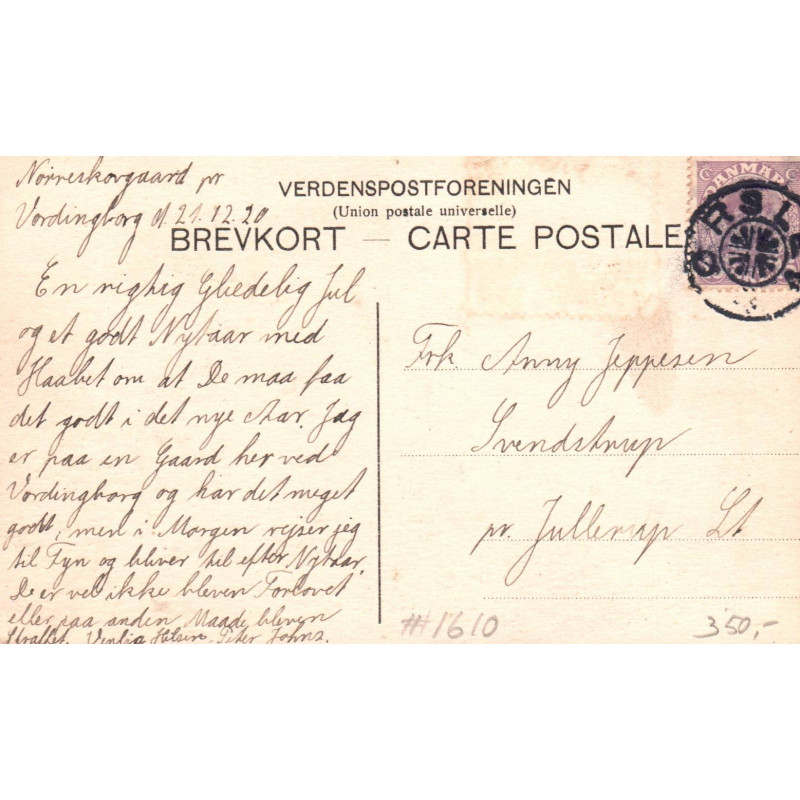 Nörreskovgaard pr
Vordingborg d. 21.12.20
VERDENSPOSTFORENINGEN
(Union postale universelle)
BREVKORT — CARTE POSTALE
DANMARK
ORSLEV
En rigtig Glædelig Jul
og et godt Nytaar med
Haabet om at De maa faa
det godt i det nye Aar. Jeg
er paa en Gaard her ved
Vordingborg og har det meget
godt, men i Morgen rejser jeg
til Fyn og bliver til efter Nytaar.
De er vel ikke bleven Forlovet
eller paa anden Maade bleven
Straffet. Venlig Hilsen Peter Johns.
Frk. Anny Jeppesen
Svendstrup
pr. Jullerup St
#1610
350,-